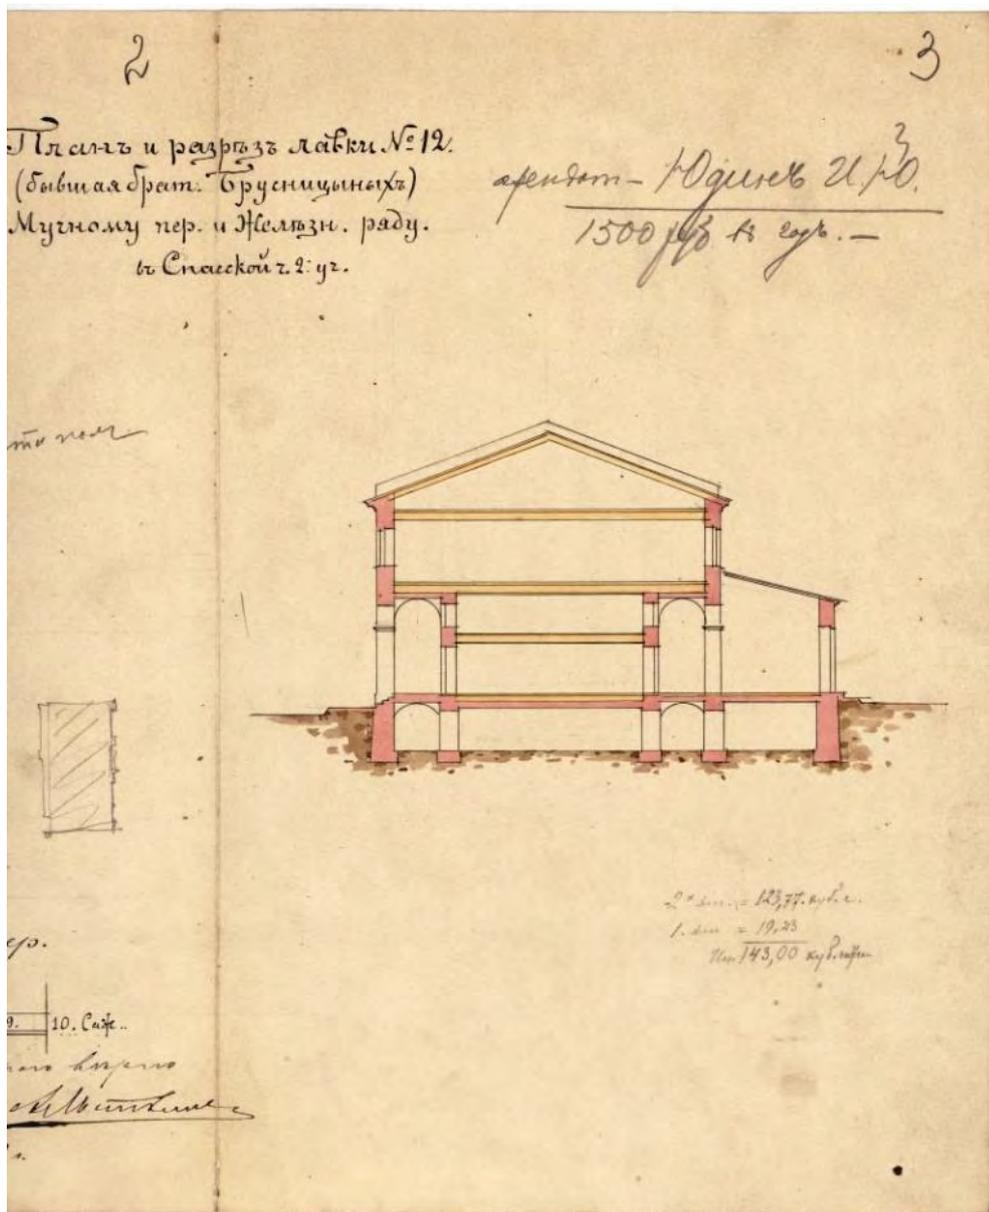 2
3
Планъ и разрѣзъ лавки № 12.
(бывшая брат. Брусницыныхъ)
Мучному пер. и Желѣзн. ряду.
въ Спасской ч. 2: уч.
Юдинъ И.
1500 руб въ годъ. —
2 = 123,77. куб. с.
1. = 19,23
143,00 куб.
ер.
9. 10. Саж..